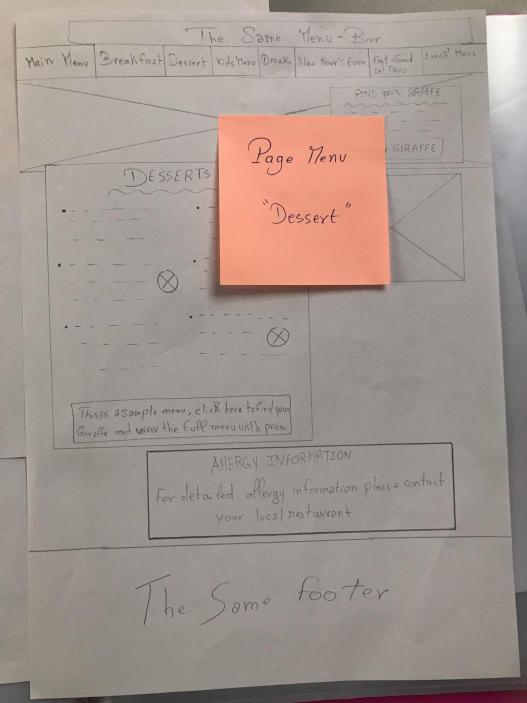 The Same Menu-Bar
Main Menu
Breakfast
Dessert
Kids Menu
Drinks
New Year's Even
Feel-Good
Set Menu
Lunch Menu
FIND YOUR GIRAFFE
GIRAFFE
Page Menu
"Dessert"
DESSERTS
This is a sample menu, click here to find your
Giraffe and view the full menu with prices
ALLERGY INFORMATION
For detailed allergy information please contact
your local restaurant
The Same footer